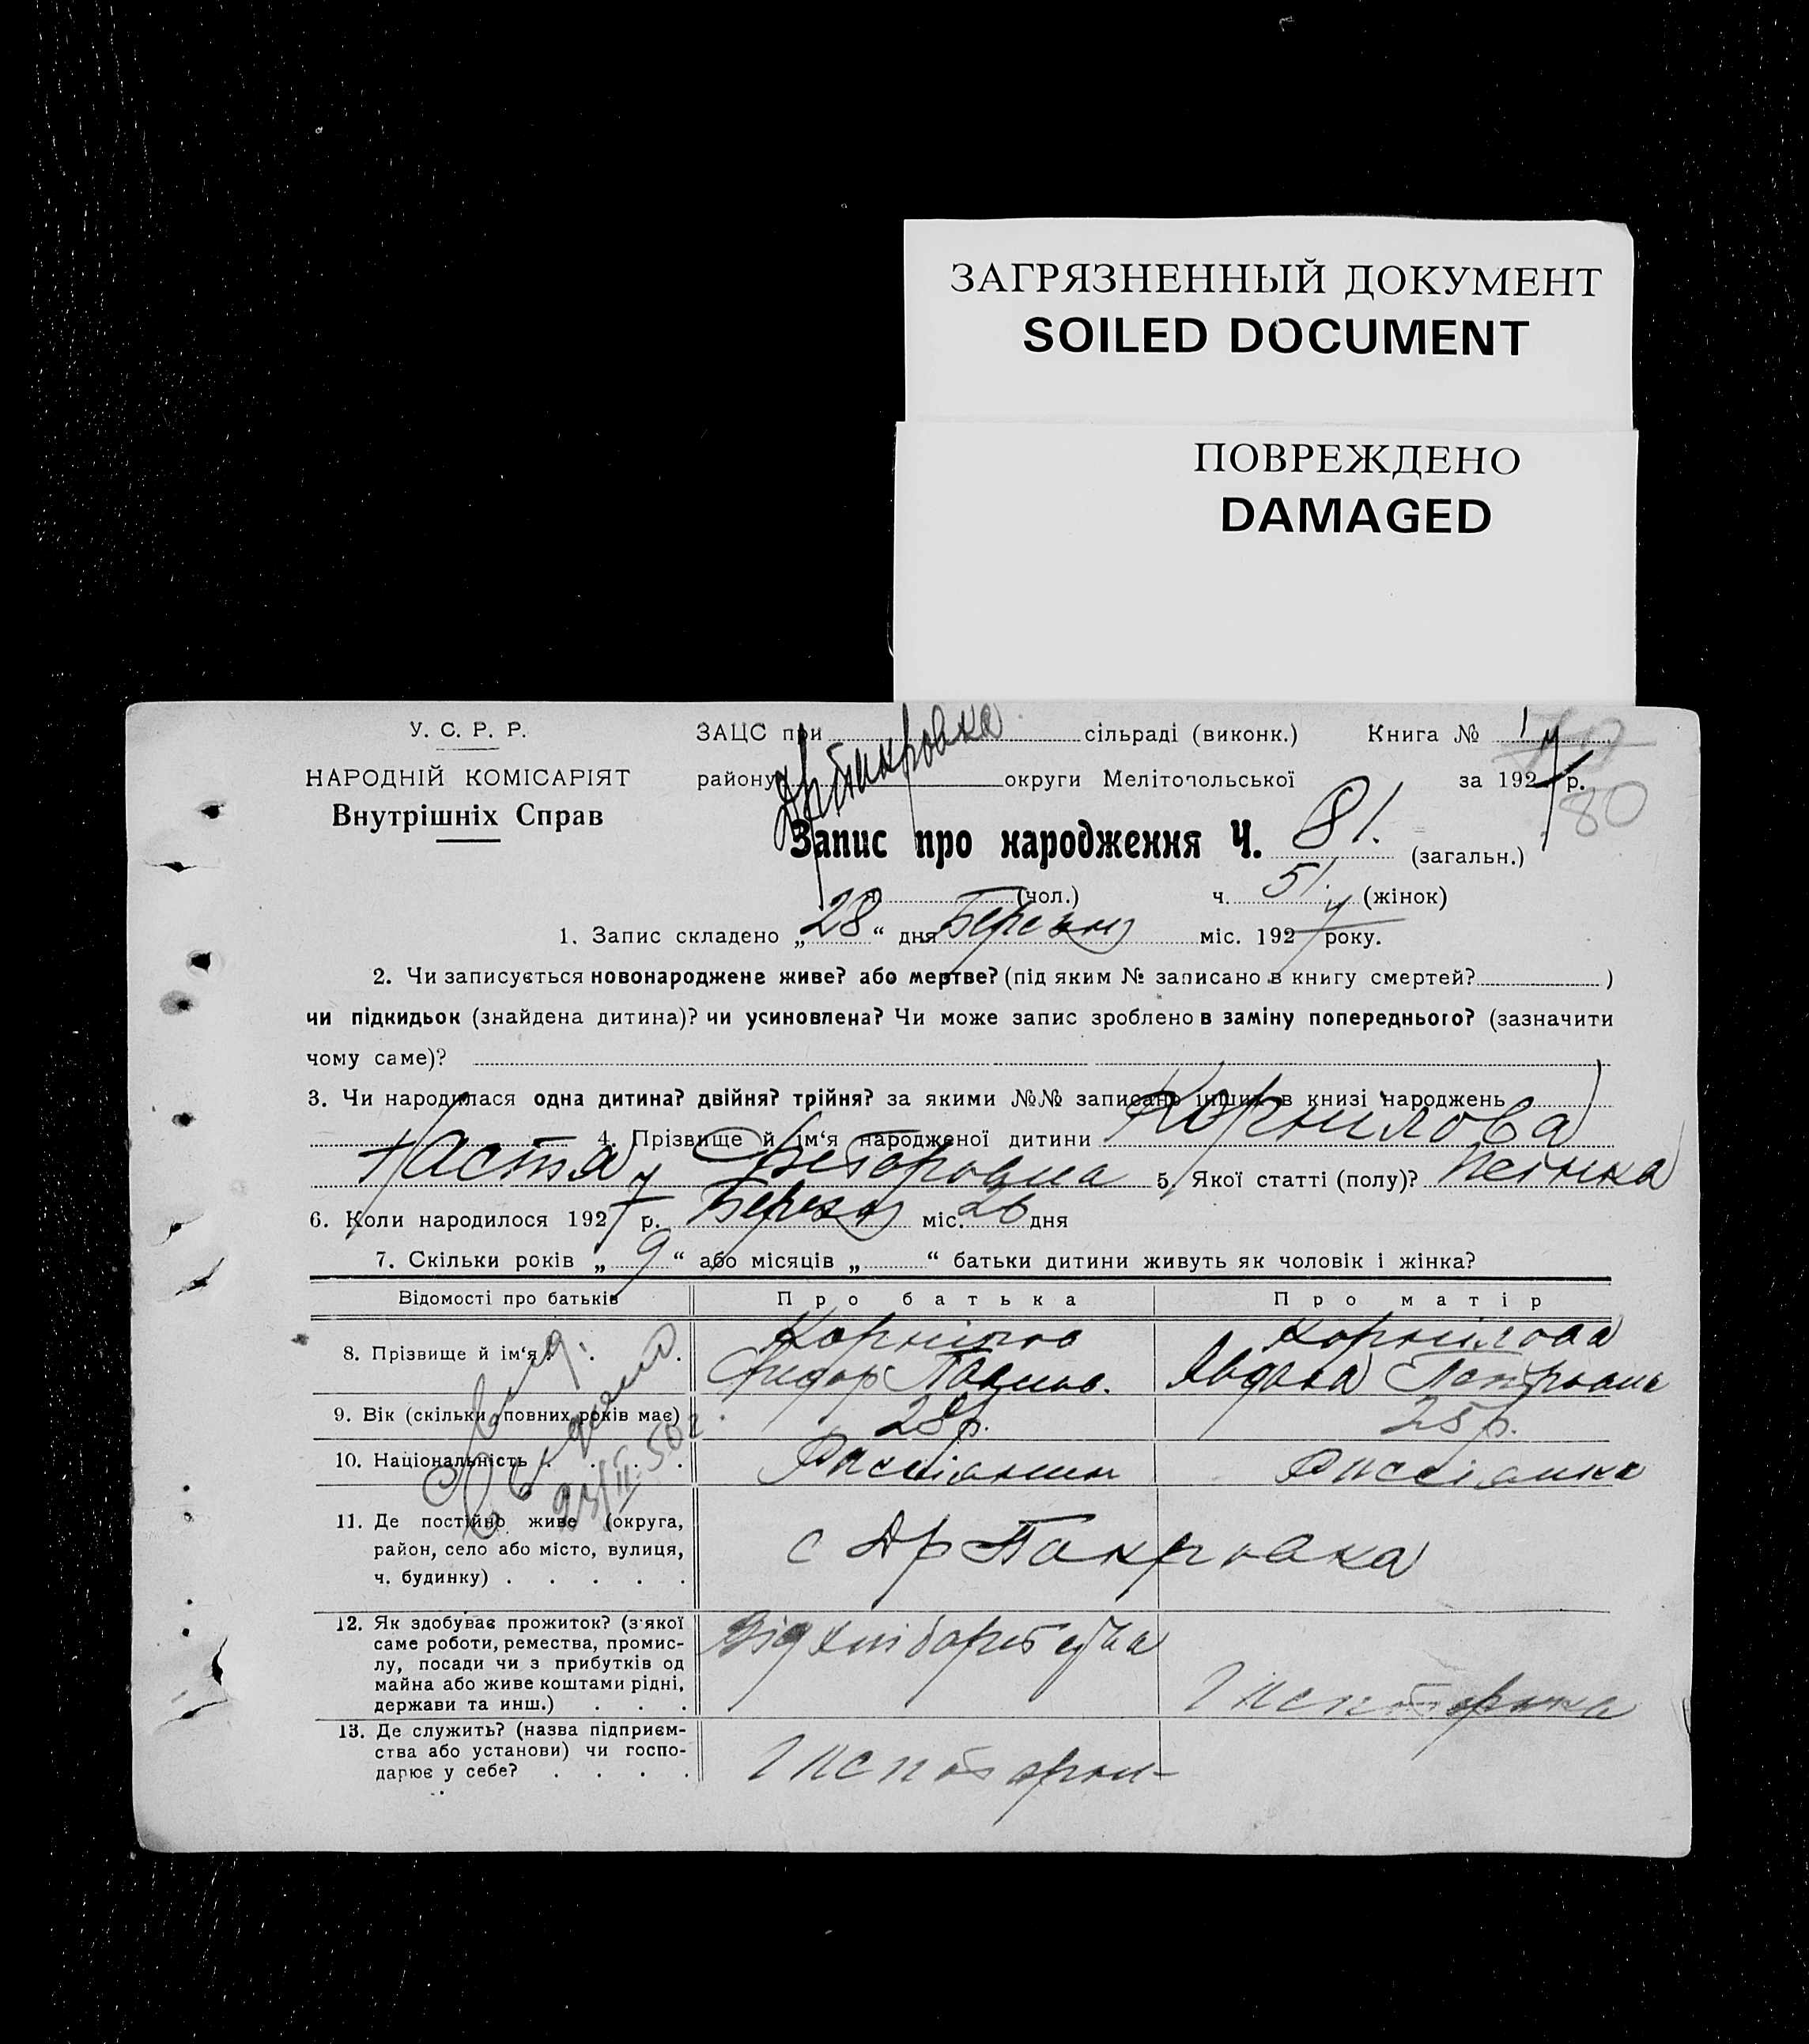 ЗАГРЯЗНЕННЫЙ ДОКУМЕНТ
SOILED DOCUMENT
ПОВРЕЖДЕНО
DAMAGED
У. С. Р. Р.
НАРОДНІЙ КОМІСАРІЯТ
Внутрішніх Справ
ЗАЦС при сільраді (виконк.) Книга № 1
району округи Мелітопольської за 1927 р.
80
Запис про народження Ч. 81. (загальн.)
(чол.) ч. 51. (жінок)
1. Запис складено „28“ дня Березня міс. 1927 року.
2. Чи записується новонароджене живе? або мертве? (під яким № записано в книгу смертей? )
чи підкидьок (знайдена дитина)? чи усиновлена? Чи може запис зроблено в заміну попереднього? (зазначити
чому саме)?
3. Чи народилася одна дитина? двійня? трійня? за якими №№ записано інших в книзі народжень
4. Прізвище й ім‘я народженої дитини Корнилова
Наста 5. Якої статті (полу)?
6. Коли народилося 1927 р. Березня міс. 26 дня
7. Скільки років „9“ або місяців „ “ батьки дитини живуть як чоловік і жінка?
Відомості про батьків Про батька Про матір
8. Прізвище й ім‘я Корнілов Корнілова
Явдоха
9. Вік (скільки повних років має) 28р. 25р.
10. Національність
11. Де постійно живе (округа,
район, село або місто, вулиця,
ч. будинку)
с
12. Як здобуває прожиток? (з якої
саме роботи, ремества, промис-
лу, посади чи з прибутків од
майна або живе коштами рідні,
держави та инш.)
13. Де служить? (назва підприєм-
ства або установи) чи госпо-
дарює у себе?